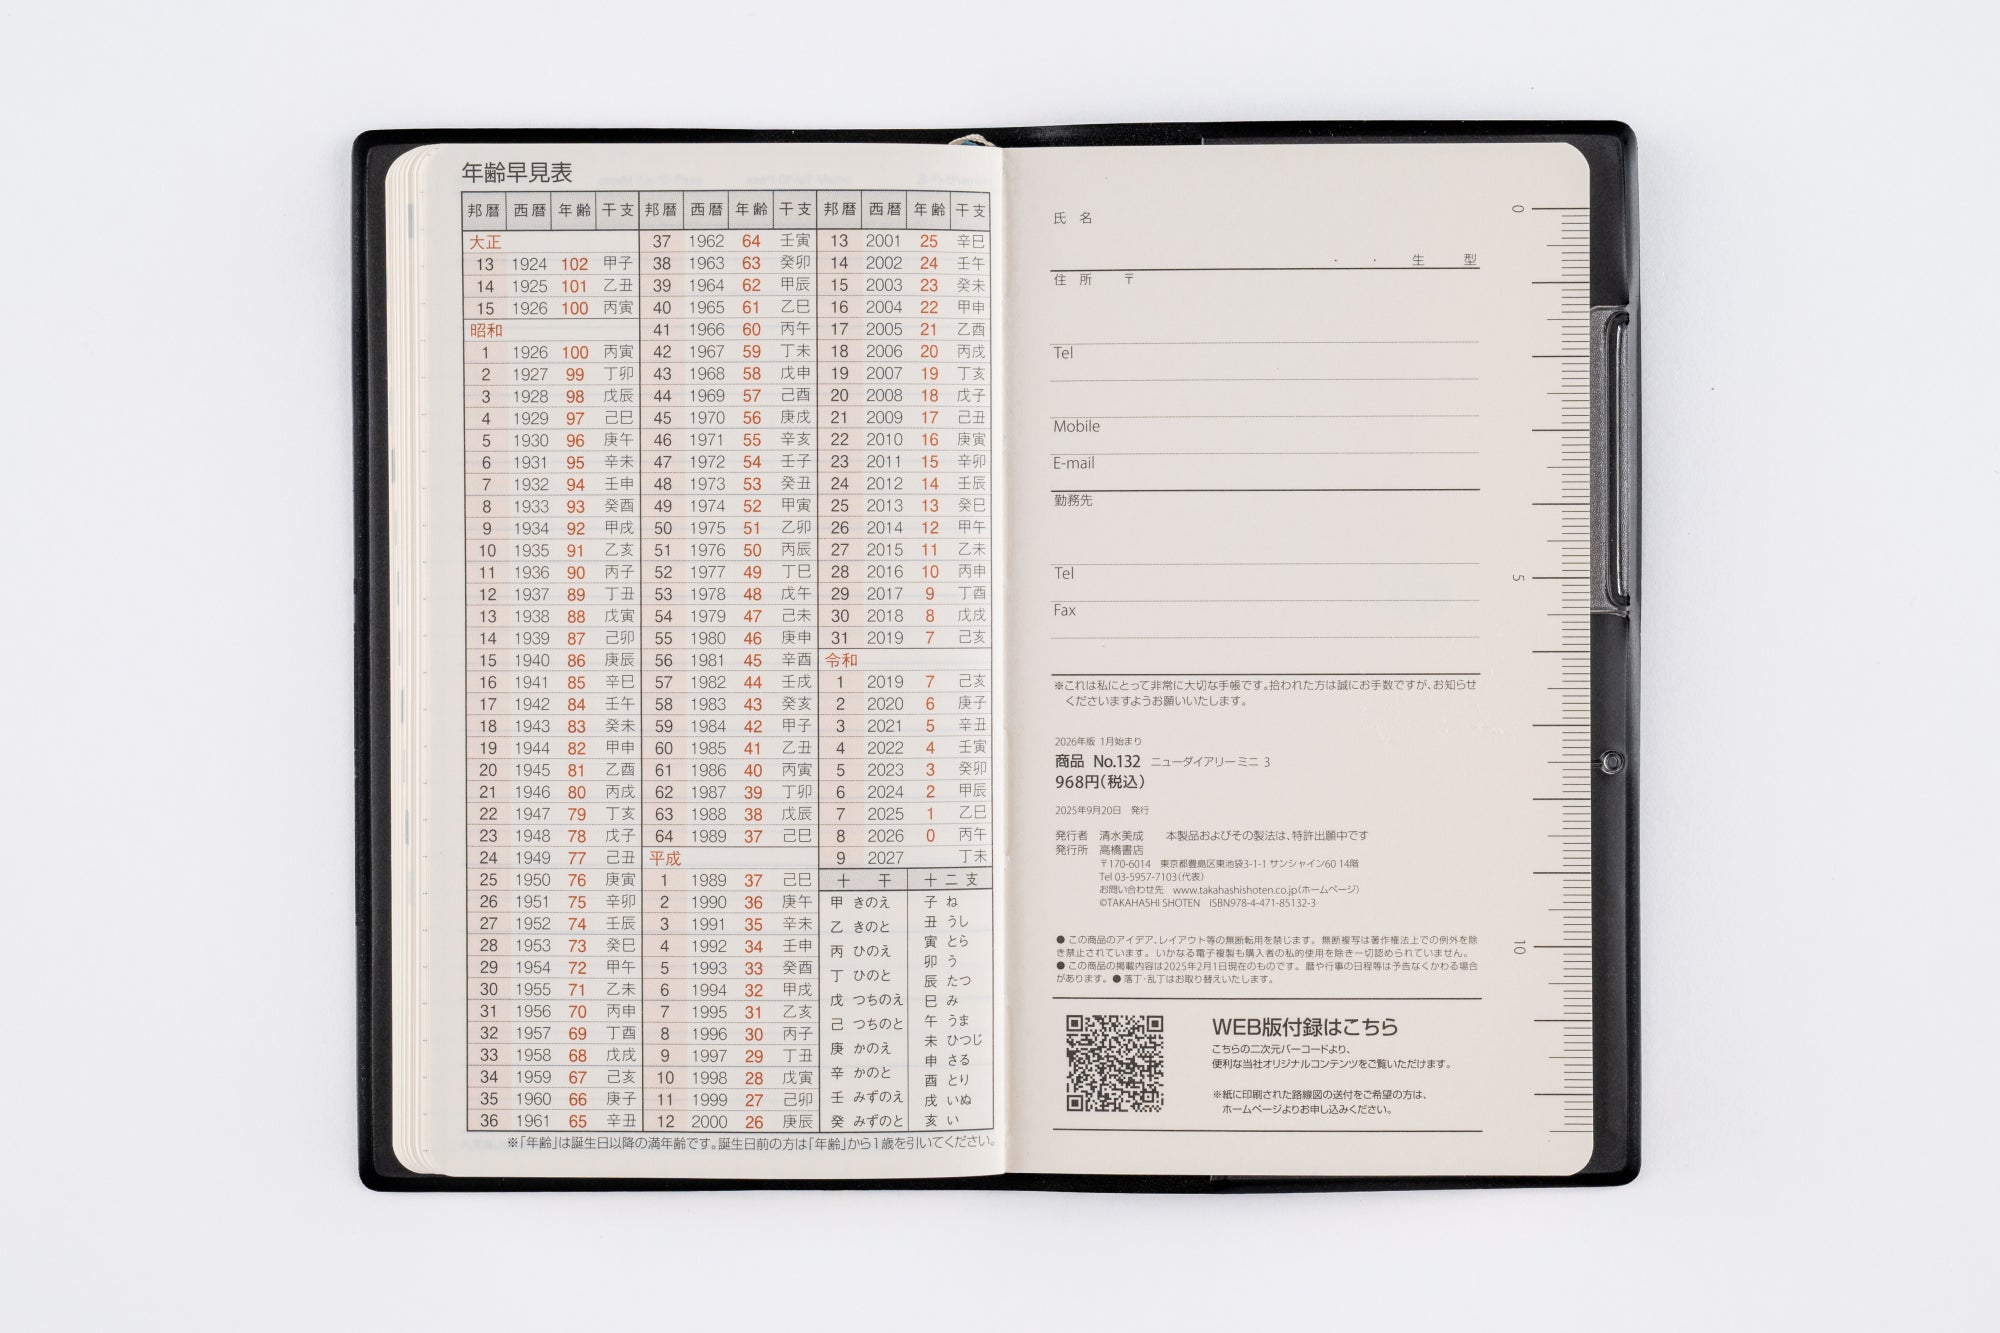 年齢早見表
邦暦 西暦 年齢 干支 邦暦 西暦 年齢 干支 邦暦 西暦 年齢 干支
大正
13 1924 102 甲子
14 1925 101 乙丑
15 1926 100 丙寅
昭和
1 1926 100 丙寅
2 1927 99 丁卯
3 1928 98 戊辰
4 1929 97 己巳
5 1930 96 庚午
6 1931 95 辛未
7 1932 94 壬申
8 1933 93 癸酉
9 1934 92 甲戌
10 1935 91 乙亥
11 1936 90 丙子
12 1937 89 丁丑
13 1938 88 戊寅
14 1939 87 己卯
15 1940 86 庚辰
16 1941 85 辛巳
17 1942 84 壬午
18 1943 83 癸未
19 1944 82 甲申
20 1945 81 乙酉
21 1946 80 丙戌
22 1947 79 丁亥
23 1948 78 戊子
24 1949 77 己丑
25 1950 76 庚寅
26 1951 75 辛卯
27 1952 74 壬辰
28 1953 73 癸巳
29 1954 72 甲午
30 1955 71 乙未
31 1956 70 丙申
32 1957 69 丁酉
33 1958 68 戊戌
34 1959 67 己亥
35 1960 66 庚子
36 1961 65 辛丑
37 1962 64 壬寅
38 1963 63 癸卯
39 1964 62 甲辰
40 1965 61 乙巳
41 1966 60 丙午
42 1967 59 丁未
43 1968 58 戊申
44 1969 57 己酉
45 1970 56 庚戌
46 1971 55 辛亥
47 1972 54 壬子
48 1973 53 癸丑
49 1974 52 甲寅
50 1975 51 乙卯
51 1976 50 丙辰
52 1977 49 丁巳
53 1978 48 戊午
54 1979 47 己未
55 1980 46 庚申
56 1981 45 辛酉
57 1982 44 壬戌
58 1983 43 癸亥
59 1984 42 甲子
60 1985 41 乙丑
61 1986 40 丙寅
62 1987 39 丁卯
63 1988 38 戊辰
64 1989 37 己巳
平成
1 1989 37 己巳
2 1990 36 庚午
3 1991 35 辛未
4 1992 34 壬申
5 1993 33 癸酉
6 1994 32 甲戌
7 1995 31 乙亥
8 1996 30 丙子
9 1997 29 丁丑
10 1998 28 戊寅
11 1999 27 己卯
12 2000 26 庚辰
13 2001 25 辛巳
14 2002 24 壬午
15 2003 23 癸未
16 2004 22 甲申
17 2005 21 乙酉
18 2006 20 丙戌
19 2007 19 丁亥
20 2008 18 戊子
21 2009 17 己丑
22 2010 16 庚寅
23 2011 15 辛卯
24 2012 14 壬辰
25 2013 13 癸巳
26 2014 12 甲午
27 2015 11 乙未
28 2016 10 丙申
29 2017 9 丁酉
30 2018 8 戊戌
31 2019 7 己亥
令和
1 2019 7 己亥
2 2020 6 庚子
3 2021 5 辛丑
4 2022 4 壬寅
5 2023 3 癸卯
6 2024 2 甲辰
7 2025 1 乙巳
8 2026 0 丙午
9 2027 丁未
十干
甲 きのえ
乙 きのと
丙 ひのえ
丁 ひのと
戊 つちのえ
己 つちのと
庚 かのえ
辛 かのと
壬 みずのえ
癸 みずのと
十二支
子 ね
丑 うし
寅 とら
卯 う
辰 たつ
巳 み
午 うま
未 ひつじ
申 さる
酉 とり
戌 いぬ
亥 い
※「年齢」は誕生日以降の満年齢です。誕生日前の方は「年齢」から1歳を引いてください。
氏名
・ ・ 生 型
住所 〒
Tel
Mobile
E-mail
勤務先
Tel
Fax
※これは私にとって非常に大切な手帳です。拾われた方は誠にお手数ですが、お知らせ
くださいますようお願いいたします。
2026年版 1月始まり
商品 No.132 ニューダイアリー ミニ 3
968円(税込)
2025年9月20日 発行
発行者 清水美成 本製品およびその製法は、特許出願中です
発行所 高橋書店
〒170-6014 東京都豊島区東池袋3-1-1 サンシャイン60 14階
Tel 03-5957-7103(代表)
お問い合わせ先 www.takahashishoten.co.jp(ホームページ)
©TAKAHASHI SHOTEN ISBN978-4-471-85132-3
● この商品のアイデア、レイアウト等の無断転用を禁じます。 無断複写は著作権法上での例外を除
き禁止されています。 いかなる電子複製も購入者の私的使用を除き一切認められていません。
● この商品の掲載内容は2025年2月1日現在のものです。 暦や行事の日程等は予告なくかわる場合
があります。● 落丁・乱丁はお取り替えいたします。
WEB版付録はこちら
こちらの二次元バーコードより、
便利な当社オリジナルコンテンツをご覧いただけます。
※紙に印刷された路線図の送付をご希望の方は、
ホームページよりお申し込みください。
0
5
10